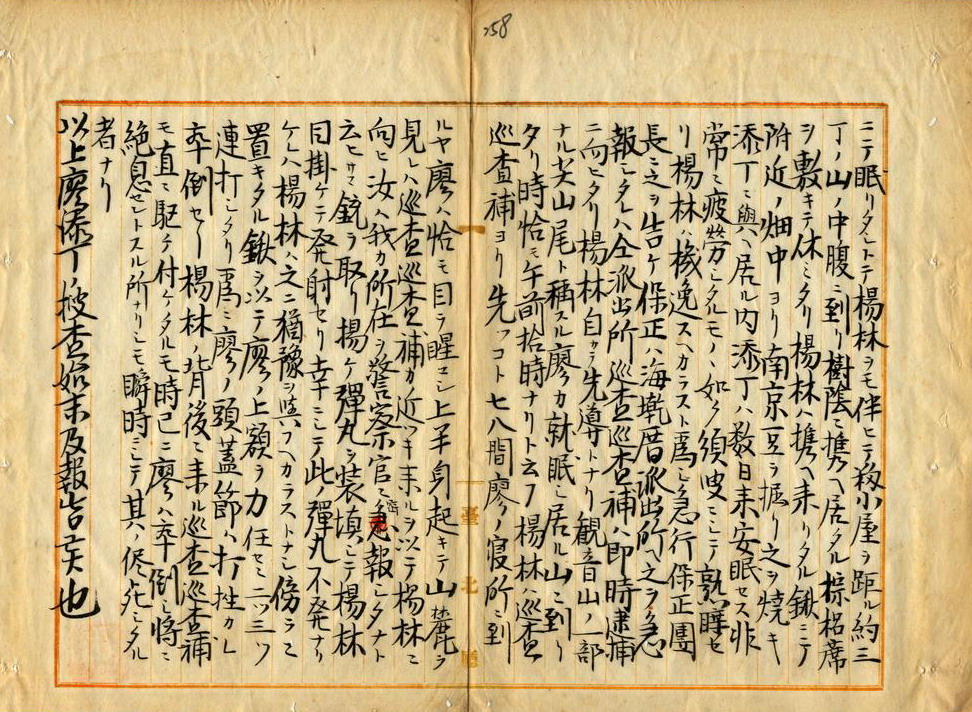 258
ニテ眠リタシトテ楊林ヲモ伴ヒテ殺小屋ヲ距ル約三
丁ノ山ノ中腹ニ到リ樹蔭ニ携ヘ居タル棕梠席
ヲ敷キテ休ミタリ楊林ハ携ヘ来リタル鍬ニテ
附近ノ畑中ヨリ南京豆ヲ掘リ之ヲ焼キ
添丁ニ與ヘ居ル内添丁ハ数日来安眠セス非
常ニ疲労シタルモノヽ如ク須臾ニシテ熟睡セ
リ楊林ハ機逸スヘカラスト為シ急行保正團
長ニ之ヲ告ケ保正ハ海墘厝派出所ヘ之ヲ急
報シタレハ仝派出所巡査巡査補ハ即時逮捕
ニ向ヒタリ楊林自カラ先導トナリ観音山ノ一部
ナル尖山尾ト稱スル廖カ就眠シ居ル山ニ到リ
タリ時恰モ午前拾時ナリト云フ楊林ハ巡査
巡査補ヨリ先ツコト七八間廖ノ寝所ニ到
臺北廳
ルヤ廖ハ恰モ目ヲ醒シ上半身起キテ山麓ヲ
見レハ巡査巡査補カ近ツキ来ルヲ以テ楊林ニ
向ヒ汝ハ我カ所在ヲ警察官ニ密急報シタナト
云ヒサマ銃ヲ取リ揚ケ彈丸ヲ装填シテ楊林
目掛ケテ発射セリ幸ニシテ此ノ彈丸不発ナリ
ケレハ楊林ハ之ニ猶豫ヲ與フヘカラストナシ傍ラニ
置キタル鍬ヲ以テ廖ノ上額ヲ力任セニ二ツ三ツ
連打シタリ為ニ廖ノ頭蓋節ハ打挫カレ
卒倒セリ楊林ノ背後ニ来ル巡査巡査補
モ直ニ駆ケ付ケタルモ時已ニ廖ハ卒倒シ将ニ
絶息セントスル所ナリシモ瞬時ニシテ其ノ侭死シタル
者ナリ
以上廖添丁ノ捜査始末及報告候也